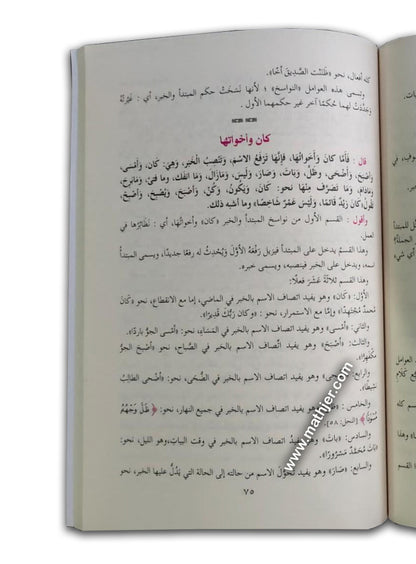 كله أفعال، نحو «ظَنَنْت الصَّدِيقَ أخًا».
وتسمى هذه العوامل «النواسخ» ؛ لأنها نَسَخَتْ حكم المبتدأ والخبر، أي : غَيَّرَتْهُ
وَجَدَّدَتْ لهما حُكمًا آخر غير حكمهما الأول .
كان وأخواتها
قال : فَأَمَّا كَانَ وَأَخَوَاتُهَا، فَإِنَّهَا تَرْفَعُ الاسْمَ، وَتَنْصِبُ الْخَبَرَ، وَهِيَ: كَانَ، وَأَمْسَى،
وَأَصْبَحَ، وَأَضْحَى، وَظَلَّ، وَبَاتَ، وَصَارَ، وَلَيْسَ، وَمَازَالَ، وَمَا انْفَكَ، وَمَا فَتِئَ، وَمَابَرِحَ،
وَمَادَامَ، وَمَا تَصَرَّفَ مِنْهَا نحو: كَانَ، وَيَكُونُ، وَكُنْ، وَأَصْبَحَ، وَيُصْبِحُ، وَأَصْبِحْ،
تَقُولُ كَانَ زَيْدٌ قَائِمًا، وَلَيْسَ عَمْرٌو شَاخِصًا» وما أشبه ذلك.
وأقول : القسم الأول من نواسخ المبتدأ والخبر «كان» وأخواتُها، أي : نَظَائِرُهَا في
لعمل.
وهذا القسم يدخل على المبتدأ فيزيل رَفْعَهُ الأَوَّلَ وَيُحْدِثُ له رفعا جديدًا، ويسمى المبتدأ
سمه، ويدخل على الخبر فينصبه، ويسمى خبره.
وهذا القسم ثَلاَثَةَ عَشَرَ فعلًا:
الأوَّل: «كَانَ» وهو يفيد اتصاف الاسم بالخبر في الماضي، إما مع الانقطاع، نحو «كَانَ
مُحمدٌ مُجْتَهِدًا» وإمَّا مع الاستمرار، نحو : «وكان رَبُّكَ قَدِيرًا».
والثاني: «أَمْسَى» وهو يفيد اتصاف الاسم بالخبر في المَسَاءِ، نحو: «أَمْسَى الجوُّ باردًا».
والثالث: «أَصْبَحَ» وهو يفيد اتِّصاف الاسم بالخبر في الصَّباح، نحو: «أَصْبَحَ الجوُّ
مكفهرًا».
والرابع: «أَضْحَى» وهو يفيد اتصاف الاسم بالخبر في الضُّحَى، نحو: «أَضْحَى الطالِبُ
نشيطًا».
والخامس : «ظَلَّ» وهو يفيد اتصاف الاسم بالخبر في جميع النهار، نحو: ﴿ظَلَّ وَجْهُهُ
مُسْوَدًّا﴾ [النحل: ٥٨].
والسادس: «بَاتَ» وهو يفيد اتصاف الاسم بالخبر في وقت البيات، وهو الليل، نحو:
«بَاتَ مُحَمَّدٌ مَسْرُورًا».
والسابع: «صَارَ» وهو يفيد تَحَوُّلَ الاسم من حالته إلى الحالة التي يَدُلُّ عليها الخبر، نحو
٧٥
www.mathjer.com